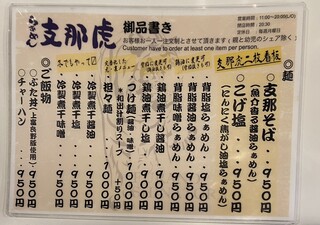 らぁめん 支那虎
御品書き
お客様お一人一注文制とさせて頂きます(親と幼児のシェア除く)
Customer have to order at least one item per person.
営業時間 11:00~20:00(LO)
閉店時間 20:30
定休日 毎週月曜日
支那虎二枚看板
◎麺
○支那そば 950円
(魚介香る醤油らぁめん)
○こげ塩 950円
(にんにく焦がし油塩らぁめん)
背脂醤油らぁめん 950円
背脂塩らぁめん 950円
背脂味噌らぁめん 950円
鶏油煮干し醤油 950円
鶏油煮干し塩 950円
つけ麺(醤油・味噌) 950円
*和出汁割りスープ +50円
担々麺 1000円
冷製煮干醤油 950円
冷製煮干塩 950円
冷製煮干味噌 950円
◎ご飯物
○ぶた丼(上富良野豚使用) 950円
○チャーハン 950円